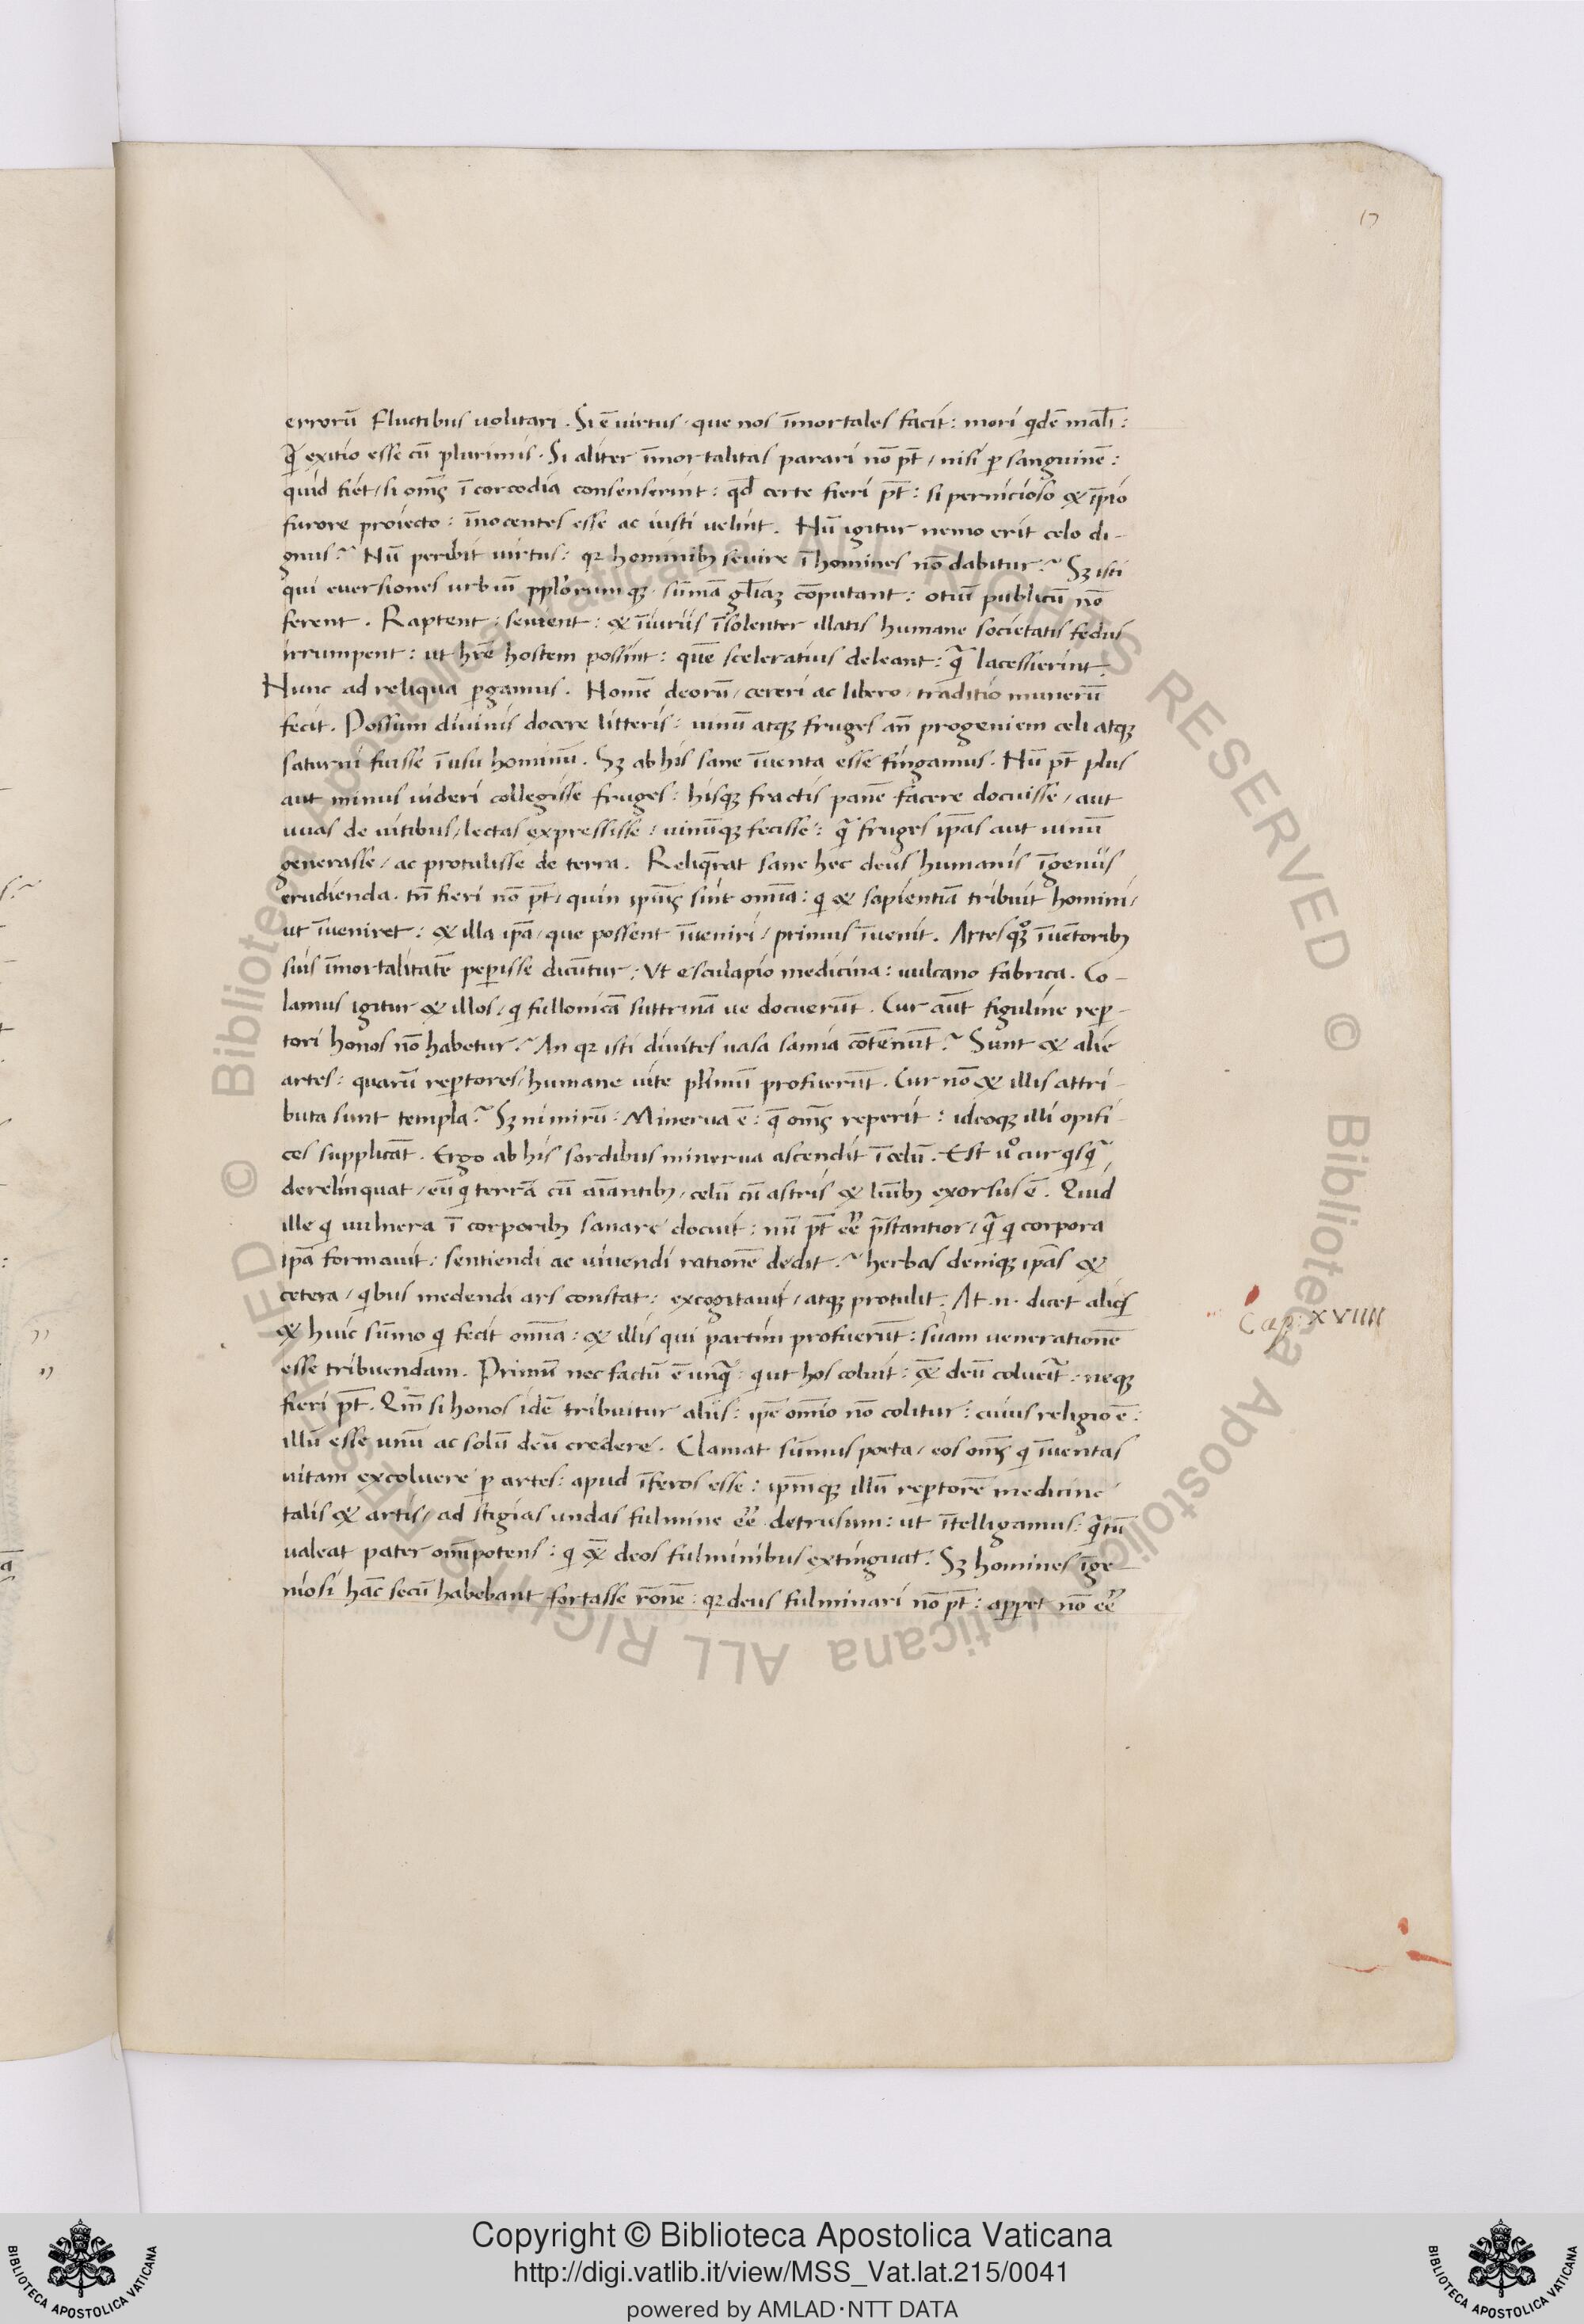 17
errorū fluctibus uolitari. Si ē uirtus, que nos īmortales facit: mori qdē mali̅:
q̄ exitio esse cū plurimis. Si aliter īmortalitas parari nō pt̄, nisi p sanguinē:
quid fiet, si om̄s ī corcodia consenserint: qd̄ certe fieri pt̄: si pernicioso & īpio
furore proiecto: īnocentes esse ac iusti uelint. Nū igitur nemo erit celo di-
gnus? Nū peribit uirtus: qꝛ hominibꝫ seuire ī homines nō dabitur? Sꝫ isti
qui euersiones urbiū pplorumqꝫ sūmā gl̄iaꝫ cōputant: otiū publicū nō
ferent. Raptent: seuient: & īiuriis īsolenter illatis humane societatis fedus
irrumpent: ut hr̄e hostem possint: quē sceleratius deleant: q̄ lacessierint.
Nunc ad reliqua pgamus. Nomē deorū, cereri ac libero, traditio munerū
fecit. Possum diuinis docere litteris: uinū atqꝫ fruges an̄ progeniem celi atqꝫ
saturni fuisse ī usu hominū. Sꝫ ab his sane īuenta esse fingamus. Nū pt̄ plus
aut minus uideri collegisse fruges: hisqꝫ fractis panē facere docuisse, aut
uuas de uitibus, lectas expressisse, uinūqꝫ fecisse: q̄ fruges ipas aut uinū
generasse, ac protulisse de terra. Reliqrat sane hec deus humanis īgeniis
erudienda. tn̄ fieri nō pt̄, quin ipiūs sint omīa: q & sapientiā tribuit homini,
ut īueniret: & illa ipā, que possent īueniri, primus īuenit. Artes qꝫº īuētoribꝫ
suis īmortalitatē pepisse dicūtur: Vt esculapio medicina: uulcano fabrica. Co-
lamus igitur & illos, q fullonicā suttrinā ue docuerūt. Cur aūt figuline rep-
tori honos nō habetur? An qꝛ isti diuites uasa samia cōtēnūt? Sunt & alie
artes: quarū reptores, humane uite pl̄imū profuerūt. Cur nō & illis attri-
buta sunt templa? Sꝫ nimirū: Minerua ē: q̄ om̄s reperit: ideoqꝫ illi opifi-
ces supplicāt. Ergo ab his sordibus minerua ascendit ī celū. Est uº cur qsq̄
derelinquat, eū q terrā cū aīantibꝫ, celū cū astris & luīibꝫ exorsus ē. Quid
ille q uulnera ī corporibꝫ sanare docuit: nū pt̄ eē p̄stantior, q̄ q corpora
ipā formauit: sentiendi ac uiuendi rationē dedit? herbas deniqꝫ ipās &
cetera, qbus medendi ars constat: excogitauit, atqꝫ protulit. At .n. dicet aliqs
Cap. XVIIII
& huic sūmo q fecit omīa: & illis qui partim profuerūt: suam uenerationē
esse tribuendam. Primū nec factū ē unq̄: q ut hos coluit: &̄ deū coluerit: neqꝫ
fieri pt̄. Qm̄ si honos idē tribuitur aliis: ipē omīo nō colitur: cuius religio ē:
illū esse unū ac solū deū credere. Clamat sūmus poeta, eos om̄s q īuentas
uitam excoluere p artes: apud īferos esse: ipm̄qꝫ illū reptorē medicine
talis & artis, ad stigias undas fulmine eē detrusum: ut ītelligamus: q̄tū
ualeat pater om̄ipotens: q &̄ deos fulminibus extinguat. Sꝫ homines īge
niosi hāc secū habebant fortasse rōnē: qꝛ deus fulminari nō pt̄: appet nō eē
Copyright © Biblioteca Apostolica Vaticana
http://digi.vatlib.it/view/MSS_Vat.lat.215/0041
powered by AMLAD·NTT DATA
BIBLIOTECA APOSTOLICA VATICANA
BIBLIOTECA APOSTOLICA VATICANA
© Biblioteca Apostolica Vaticana ALL RIGHTS RESERVED © Biblioteca Apostolica Vaticana ALL RIGHTS RESERVED